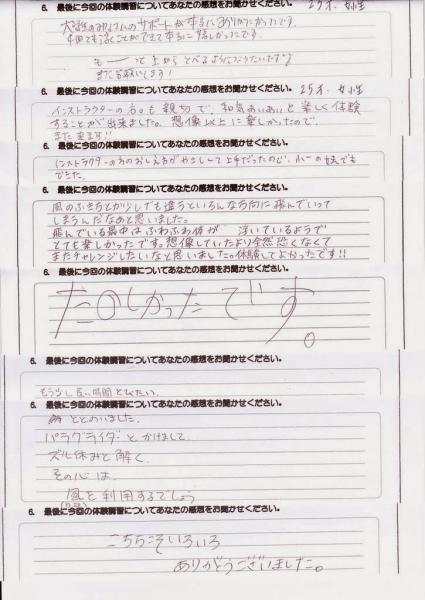 6. 最後に今回の体験講習についてあなたの感想をお聞かせください。 27才、女性
サポートが本当にありがたかったです。
浮くことができて本当に嬉しかったです。
も──っと上からとべるようになりたいです
またお願いします!
6. 最後に今回の体験講習についてあなたの感想をお聞かせください。 25才 女性
インストラクターの方。も親切で、和気あいあいと楽しく体験
することが出来ました。想像以上に楽しかったので、
また来ます!!
6. 最後に今回の体験講習についてあなたの感想をお聞かせください。
インストラクターの方のおしえ方がやさしくて上手だったので、小一の でも
できた。
6. 最後に今回の体験講習についてあなたの感想をお聞かせください。
風のふきちとか少しでも違うといろんな方向に飛んでいって
しまうんだなあと思いました。
飛んでいる最中はふわふわ体が 浮いているようで
とても楽しかったです。想像していたより全然恐くなくて
またチャレンジしたいなと思いました。体験してよかったです!!
6. 最後に今回の体験講習についてあなたの感想をお聞かせください。
たのしかったです。
6. 最後に今回の体験講習についてあなたの感想をお聞かせください。
もう少し長い時間とびたい。
6. 最後に今回の体験講習についてあなたの感想をお聞かせください。
ととのいました。
パラグライダーとかけまして、
ズル休みと解く、
その心は、
風を利用するでしょう
6. 最後に今回の体験講習についてあなたの感想をお聞かせください。
こちらこそいろいろ
ありがとうございました。